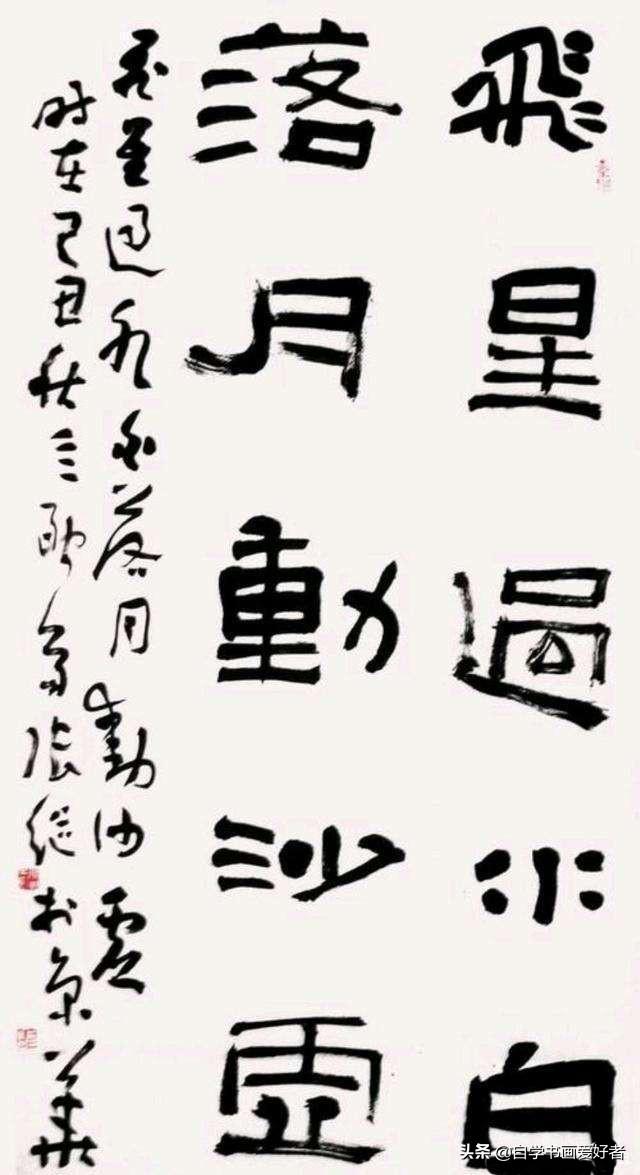 飛星過水白
落月動沙虛
飛星過水白落月動沙虛
時在己丑秋三耻斋張継於京華
头条 @自学书画爱好者